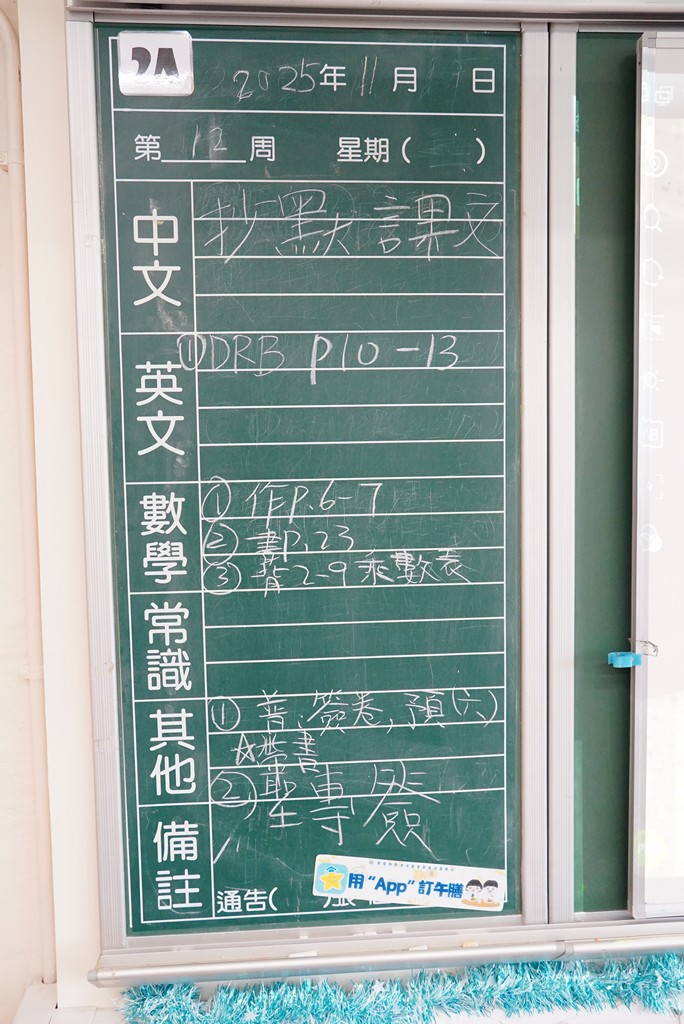 2A
2025年11月 日
第12周 星期( )
中文
抄默 課文
英文
①DRB P10-13
數學
① 作P.6-7
② 書P.23
③ 背2-9乘數表
常識
其他
① 普.簽卷,預(六)
☆帶書
②
備註
通告(
用“App”訂午膳